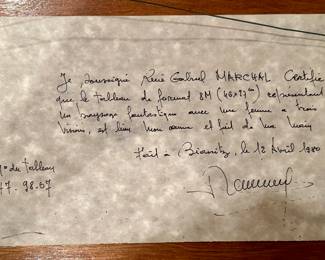 Je soussigné René Gabriel MARCHAL Certifie
que le tableau de format 8M (46x27cm) représentant
un paysage fantastique avec une femme à trois
visages, est bien mon œuvre et fait de ma main
Fait à Biarritz, le 12 Avril 1980
N° du tableau
47.98.07